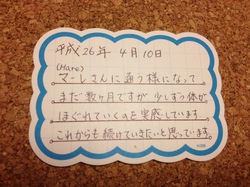 平成26年 4月10日
(Hare)
マーレさんに通う様になって
まだ数ヶ月ですが 少しずつ体が
ほぐれていくのを実感しています
これからも続けていきたいと思っています。